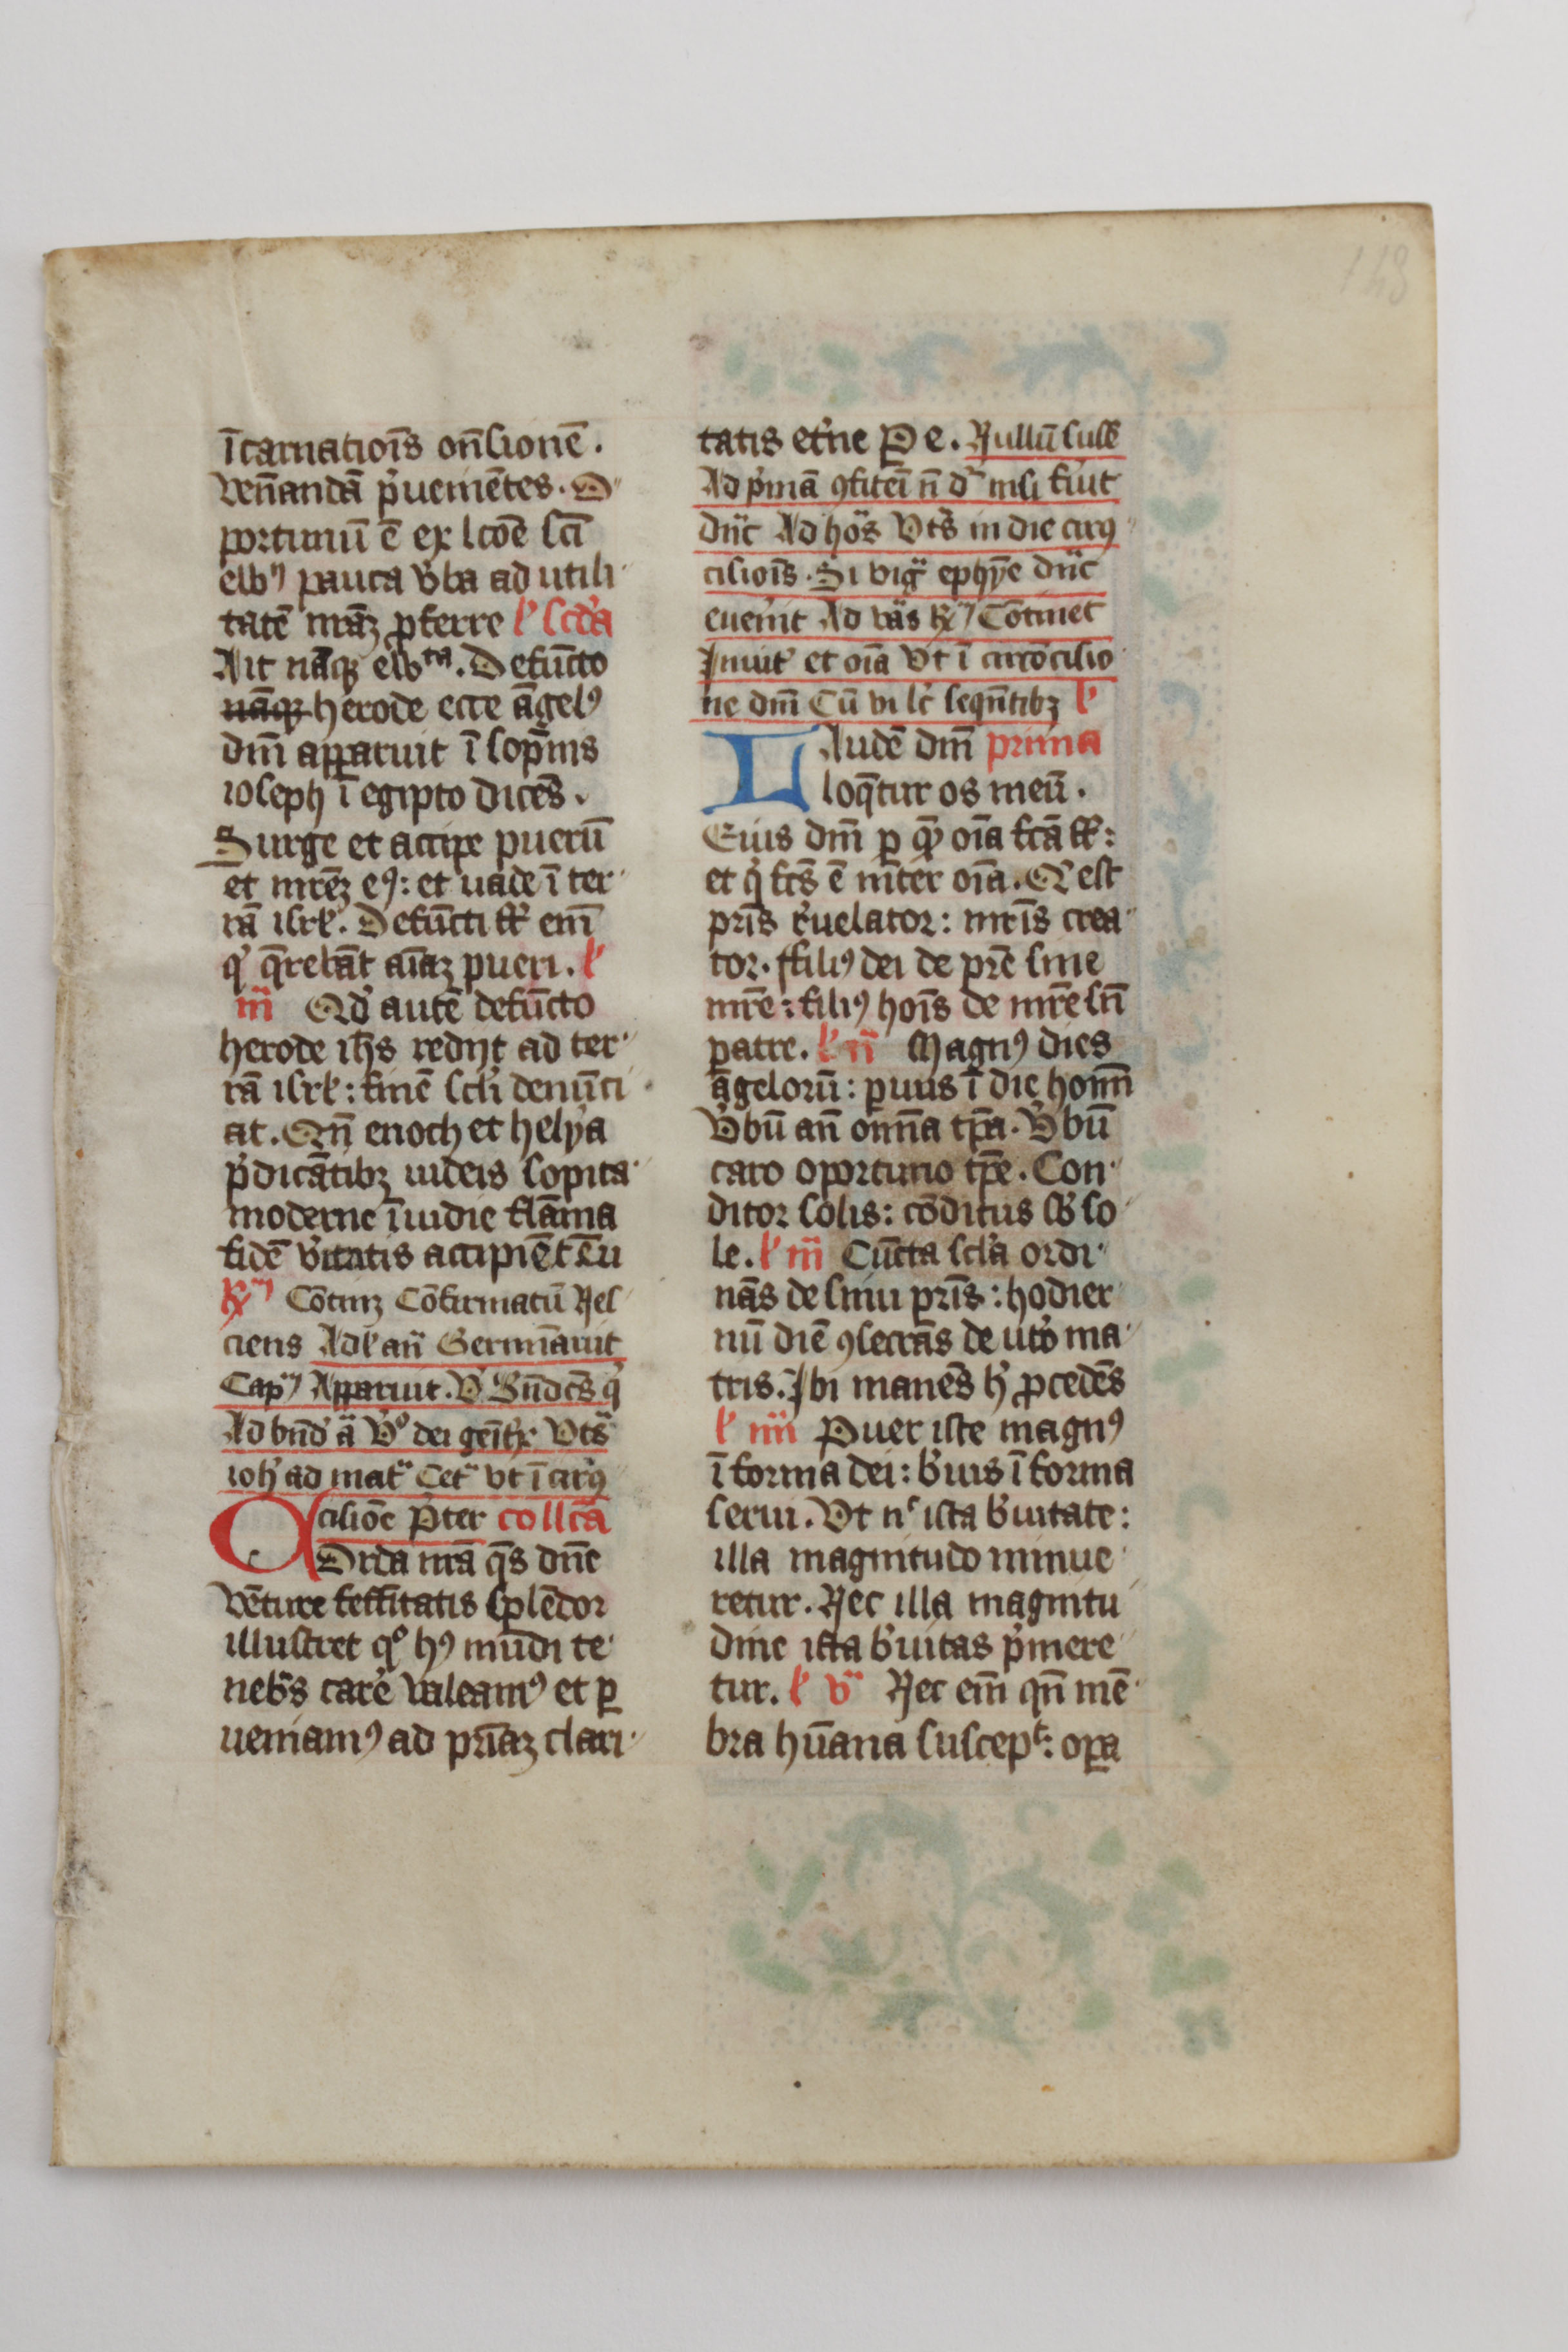 148
īcarnatiōis on̄sionē.
ven̄andā p̄ueniētes. O
portunū ē ex lc̄oē sc̄i
eưỿ pauca v̓ba ad utili
tatē nr̄aʒ ꝓferre l' sc̄da
Ait nāqꝫ eưta. Defūcto
nāqꝫ herode ecce āgelꝰ
dn̄i apparuit ī sopn̄is
ioseph ī egipto dicēs.
Surge et accipe puerū
et mr̄eʒ eꝰ: et uade ī ter
rā isrl'. Defūcti sr̄ em̄
q' q̄rebāt aīaʒ pueri. l'
iii Qd' autē defūcto
herode ih̄s redijt ad ter
rā isrl': finē scl'i denūci
at. Qn̄ enoch et helya
p̄dicātibꝫ iudeis sopita
moderne īuidie flāma
fidē v̓itatis accipiēt Tu
Cōtinꝫ Cōfirmatū Nes
ciens Adl' an̄ Germīauit
Capᷝ Apparuit. V̓ Bn̄dcs̄ q'
Ad bn̄d' ā V̓o dei genit̄x Vts̄
ioh' ad mat̄ Cet̄ vt ī circū
cisiōe p̄ter collc̄a
Corda nr̄a q̄s dn̄e
vēture festītatis splēdor
illustret qo hꝰ mūdi te
neb̄s car̓e valeamꝰ et ꝑ
ueniamꝰ ad pr̄iaʒ clari
tatis et̓ne Pe. Nullū suff̄
Ad p̓mā ꝯfitēi n̄ dr̄ nisi fiu̓t
dn̄ic Ad hōs Vts̄ in die circū
cisiōis. Si vig̓ ephyē dn̄ic
euen̓it Ad vās Cōtinet
Inuit' et oīa vt ī circōcisio
ne dn̄i Cū vi lc̄ seqn̄tibꝫ l'
Laudē dn̄i prima
loq̄tur os meū.
Eius dn̄i ꝑ quē oīa fc̄a sr̄:
et q' fc̄s ē int̄er oīa. Q' est
pr̄is r̓uelator: mr̄is crea
tor. ffiliꝰ dei de pr̄e sine
mr̄e: filiꝰ hoīs de mr̄e sn̄
patre. l' ii Magnꝰ dies
āgelorū: ꝑuus ī die homī
V̓bū an̄ omn̄a tp̄a. V̓bū
caro oportuno tp̄e. Con
ditor solis: cōditus sb̓ so
le. l' iii Cūcta scl'a ordi
nās de sinu pr̄is: hodier
nū diē ꝯsecrās de ut̓o ma
tris. Ibi manēs h' ꝓcedēs
l' iiii Puer iste magnꝰ
ī forma dei: b̓uis ī forma
serui. Vt nc ista b̓uitate:
illa magnitudo minue
retur. Nec illa magnitu
dine ista b̓uitas p̓mere
tur. l' v Nec em̄ qn̄ mē
bra hūana suscept: oꝑa